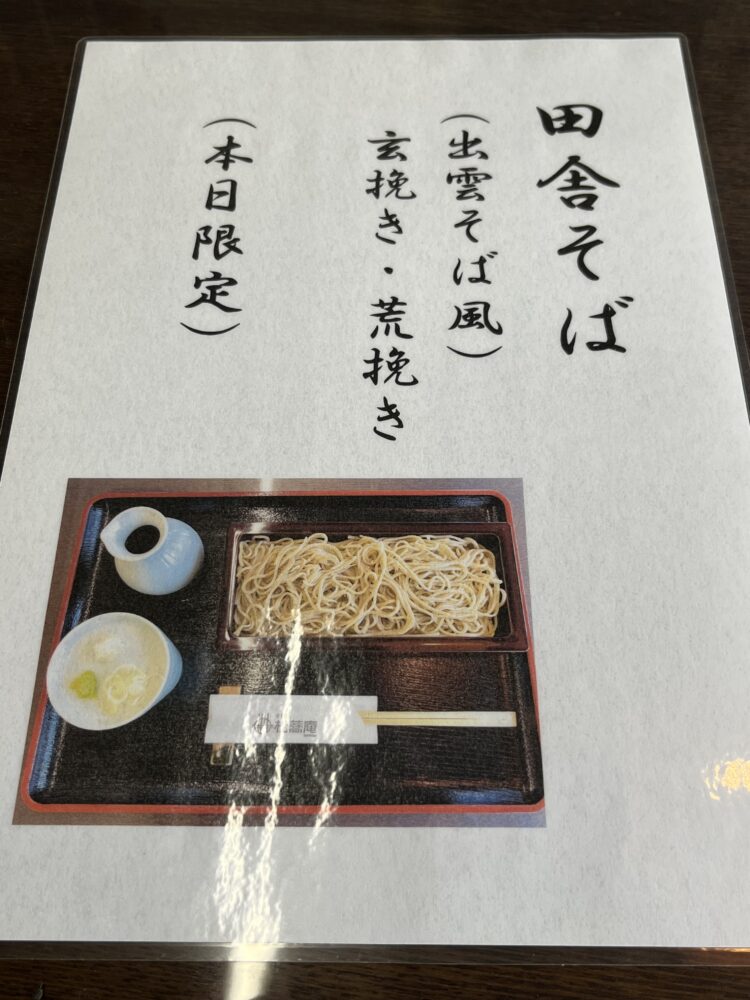 田舎そば
（出雲そば風）
玄挽き・荒挽き
（本日限定）